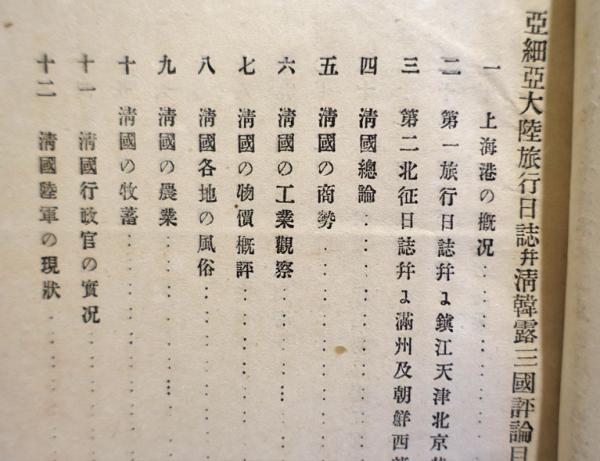 亞細亞大陸旅行日誌并淸韓露三國評論目
一 上海港の槪况
二 第一旅行日誌幷ɿ鎭江天津北京
三 第二北征日誌幷ɿ滿州及朝鮮西
四 淸國總論
五 淸國の商勢
六 淸國の工業觀察
七 淸國の物價槪評
八 淸國各地の風俗
九 淸國の農業
十 淸國の牧蓄
十一 淸國行政官の實況
十二 淸國陸軍の現狀